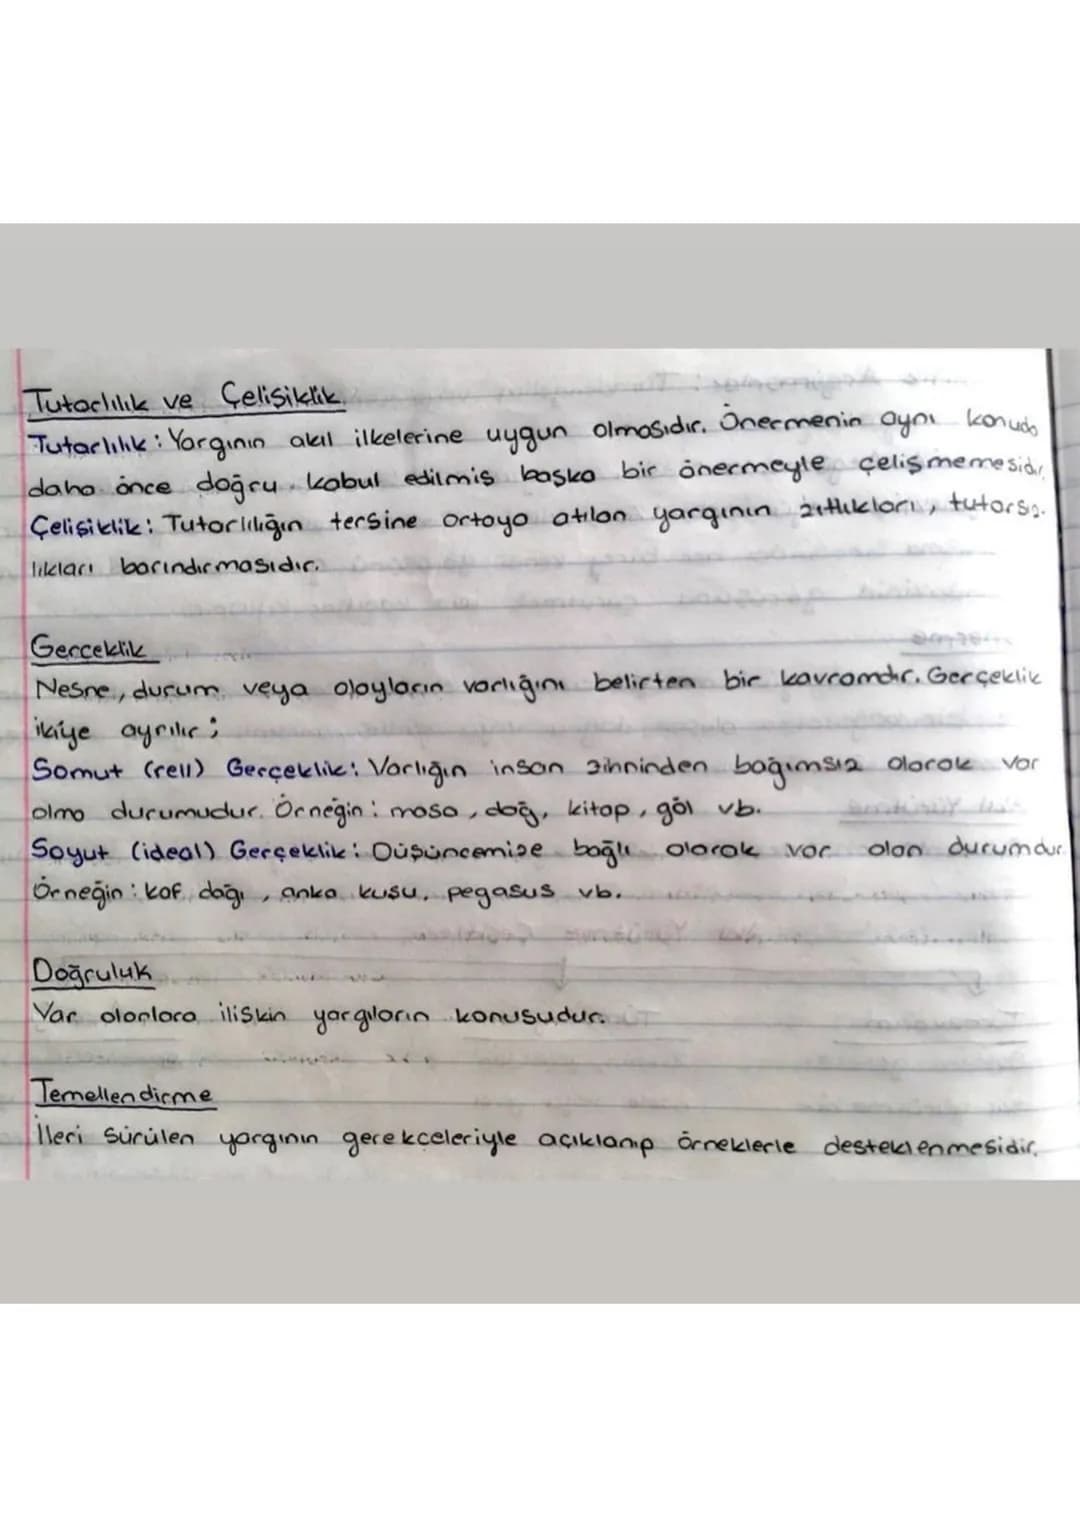 Tutarlılık ve Çelişiklik
Tutarlılık: Yargının akıl ilkelerine uygun olmasıdır. Önermenin aynı konuda
daha önce doğru kabul edilmiş başka bir önermeyle çelişmemesidir
Çelişiklik: Tutarlılığın tersine ortaya atılan yargının zıtlıkları, tutarsız-
lıkları barındırmasıdır.
Gerçeklik
Nesne, durum veya olayların varlığını belirten bir kavramdır. Gerçeklik
ikiye ayrılır;
Somut (rell) Gerçeklik: Varlığın insan zihninden bağımsız olarak var
olma durumudur. Örneğin: masa, dağ, kitap, göl vb.
Soyut (ideal) Gerçeklik: Düşüncemize bağlı olarak var olan durumdur.
Örneğin: kaf dağı, anka kuşu, pegasus vb.
Doğruluk
Var olanlara ilişkin yargıların konusudur.
Temellendirme
İleri sürülen yargının gerekçeleriyle açıklanıp örneklerle desteklenmesidir.